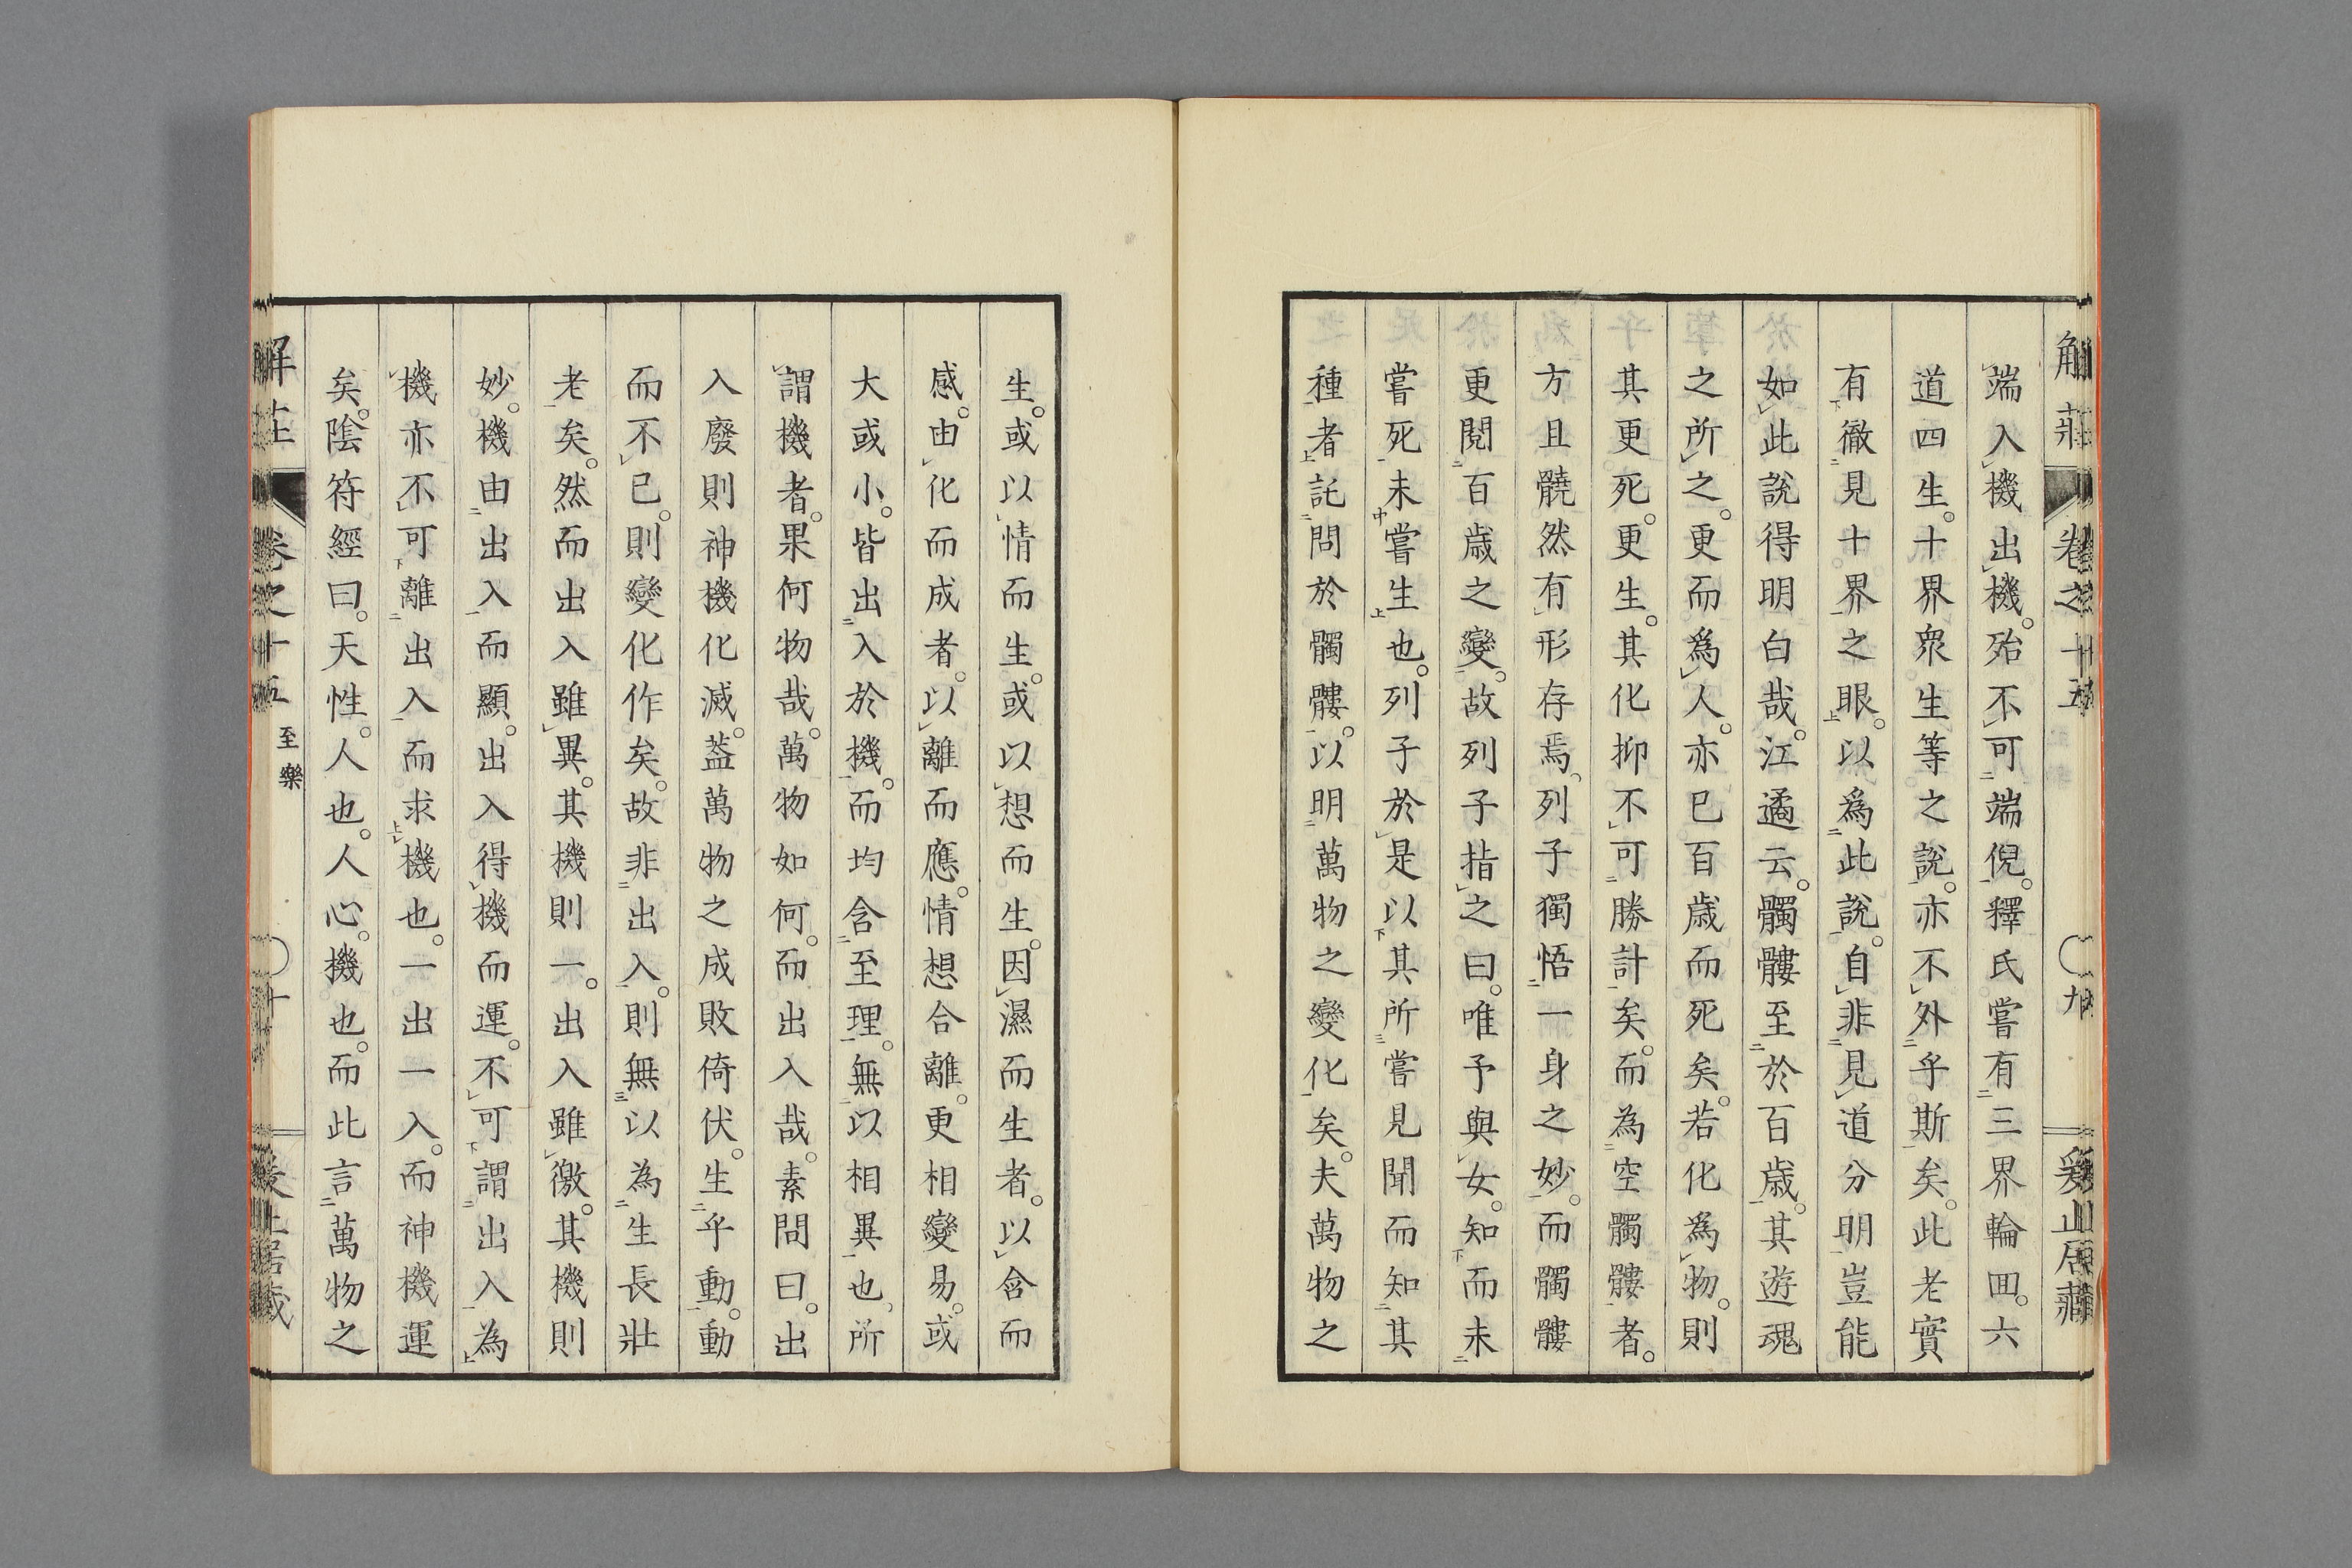 解莊 卷之十五 〇九
端入機出機。殆不可端倪。釋氏嘗有三界輪囬。六
道四生。十界衆生等之說。亦不外乎斯矣。此老實
有徹見十界之眼。以爲此說。自非見道分明豈能
如此說得明白哉。江遹云。髑髏至於百歳。其遊魂
之所之。更而爲人。亦已百歳而死矣。若化爲物。則
其更死。更生。其化抑不可勝計矣。而為空髑髏者。
方且髐然有形存焉。列子獨悟一身之妙。而髑髏
更閱百歳之變。故列子指之曰。唯予與女。知而未
嘗死未嘗生也。列子於是以其所嘗見聞而知其
種者託問於髑髏。以明萬物之變化矣。夫萬物之
生。或以情而生。或以想而生。因濕而生者。以含而
感。由化而成者。以離而應。情想合離。更相變易。或
大或小。皆出入於機。而均含至理。無以相異也、所
謂機者。果何物哉。萬物如何。而出入哉。素問曰。出
入廢則神機化滅。葢萬物之成敗倚伏。生乎動。動
而不已。則變化作矣。故非出入。則無以為生長壯
老矣。然而出入雖異。其機則一。出入雖徼。其機則
妙。機由出入而顯。出入得機而運。不可謂出入為
機亦不可離出入而求機也。一出一入。而神機運
矣。陰符經曰。天性。人也。人心。機也。而此言萬物之
解莊 卷之十五 至樂 〇十